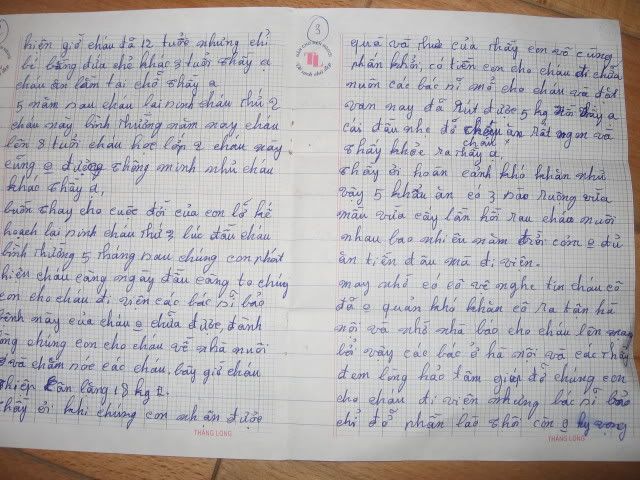 hiện giờ cháu đã 12 tuổi nhưng chỉ
bé bằng đứa chẻ khác 3 tuổi thầy ạ
cháu ăn lằm tại chỗ thầy ạ
5 năm sau cháu lại sinh cháu thứ 2
cháu này bình thường năm nay cháu
lên 8 tuổi cháu học lớp 2 cháu này
cũng o được thông minh như cháu
khác thầy ạ,
buồn thay cho cuộc đời của con lỡ kế
hoạch lại sinh cháu thứ 3 lúc đầu cháu
bình thường 5 tháng sau chúng con phát
hiện cháu càng ngày đầu càng to chúng
con cho cháu đi viện các bác sĩ bảo
bệnh này của cháu o chữa được, đành
chúng con cho cháu về nhà nuôi
và chăm nóc các cháu, bây giờ cháu
cân lặng 18 kg
thầy ơi khi chúng con nhận được
THĂNG LONG
3
quà và thư của thầy con vô cùng
phấn khởi, có tiền con cho cháu đi chữa
nuôn các bác sĩ mổ cho cháu và đặt
van nay đã rút được 5 kg thầy ạ
cái đầu nhẹ đỡ cháu ăn rất ngon và
thấy khỏe ra thầy ạ,
thầy ơi hoàn cảnh khó khăn như
vậy 5 khẩu ăn có 3 sào ruộng vừa
mầu vừa cấy lần hồi rau cháo nuôi
nhau bao nhiêu năm trời còn o đủ
ăn tiền đâu mà đi viện.
may nhờ có cô về nghe tin cháu cô
đã o quản khó khăn cô ra tận hà
nội và nhờ nhà báo cho cháu lên
bởi vậy các bác ở hà nội và các thầy
đem lòng hảo tâm giúp đỡ chúng con
cho cháu đi viện nhưng bác sĩ bảo
chỉ đỡ phần lào thôi còn o hy vọng
THĂNG LONG